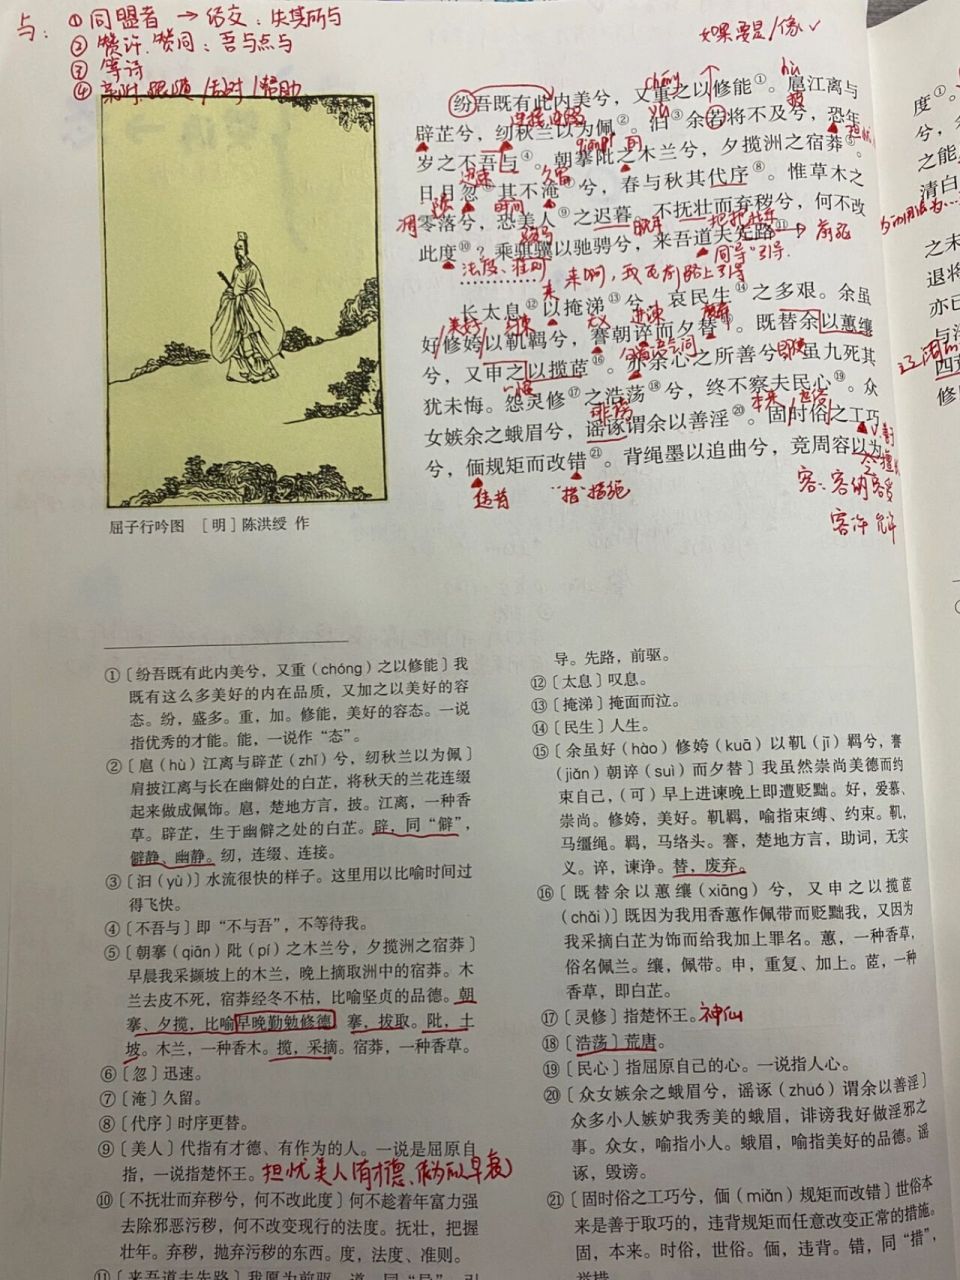 与：①同盟者 → 结交：失其所与
②赞许、赞同：吾与点与
③等待
④亲附、跟随/古时/帮助
如果要是/像
纷吾既有此内美兮，又重之以修能①。扈江离与
辟芷兮，纫秋兰以为佩②。汩③余若将不及兮，恐年
岁之不吾与④。朝搴阰之木兰兮，夕揽洲之宿莽⑤。
日月忽⑥其不淹⑦兮，春与秋其代序⑧。惟草木之
零落兮，恐美人⑨之迟暮。不抚壮而弃秽兮，何不改
此度⑩？乘骐骥以驰骋兮，来吾道夫先路⑪！
同"导"引导.
法度、准则
来啊，我在前路上引导
长太息⑫以掩涕⑬兮，哀民生⑭之多艰。余虽
好修姱以鞿羁兮，謇朝谇而夕替⑮。既替余以蕙纕
兮，又申之以揽茝⑯。亦余心之所善兮，虽九死其
犹未悔。怨灵修⑰之浩荡⑱兮，终不察夫民心⑲。众
女嫉余之蛾眉兮，谣诼谓余以善淫⑳。固时俗之工巧
兮，偭规矩而改错㉑。背绳墨以追曲兮，竞周容以为
违背
"措"措施
容：容纳 容受
容许 允许
屈子行吟图 ［明］陈洪绶 作
①〔纷吾既有此内美兮，又重（chóng）之以修能〕我
既有这么多美好的内在品质，又加之以美好的容
态。纷，盛多。重，加。修能，美好的容态。一说
指优秀的才能。能，一说作“态”。
②〔扈（hù）江离与辟芷（zhǐ）兮，纫秋兰以为佩〕
肩披江离与长在幽僻处的白芷，将秋天的兰花连缀
起来做成佩饰。扈，楚地方言，披。江离，一种香
草。辟芷，生于幽僻之处的白芷。辟，同“僻”，
僻静、幽静。纫，连缀、连接。
③〔汩（yù）〕水流很快的样子。这里用以比喻时间过
得飞快。
④〔不吾与〕即“不与吾”，不等待我。
⑤〔朝搴（qiān）阰（pí）之木兰兮，夕揽洲之宿莽〕
早晨我采撷坡上的木兰，晚上摘取洲中的宿莽。木
兰去皮不死，宿莽经冬不枯，比喻坚贞的品德。朝
搴、夕揽，比喻早晚勤勉修德。搴，拔取。阰，土
坡。木兰，一种香木。揽，采摘。宿莽，一种香草。
⑥〔忽〕迅速。
⑦〔淹〕久留。
⑧〔代序〕时序更替。
⑨〔美人〕代指有才德、有作为的人。一说是屈原自
指，一说指楚怀王。担忧美人有才德、作为的早衰
⑩〔不抚壮而弃秽兮，何不改此度〕何不趁着年富力强
去除邪恶污秽，何不改变现行的法度。抚壮，把握
壮年。弃秽，抛弃污秽的东西。度，法度、准则。
⑪〔来吾道夫先路〕我愿为前驱。道，同“导”，引
导。先路，前驱。
⑫〔太息〕叹息。
⑬〔掩涕〕掩面而泣。
⑭〔民生〕人生。
⑮〔余虽好（hào）修姱（kuā）以鞿（jī）羁兮，謇
（jiǎn）朝谇（suì）而夕替〕我虽然崇尚美德而约
束自己，（可）早上进谏晚上即遭贬黜。好，爱慕、
崇尚。修姱，美好。鞿羁，喻指束缚、约束。鞿，
马缰绳。羁，马络头。謇，楚地方言，助词，无实
义。谇，谏诤。替，废弃。
⑯〔既替余以蕙纕（xiāng）兮，又申之以揽茝
（chǎi）〕既因为我用香蕙作佩带而贬黜我，又因为
我采摘白芷为饰而给我加上罪名。蕙，一种香草，
俗名佩兰。纕，佩带。申，重复、加上。茝，一种
香草，即白芷。
⑰〔灵修〕指楚怀王。神仙
⑱〔浩荡〕荒唐。
⑲〔民心〕指屈原自己的心。一说指人心。
⑳〔众女嫉余之蛾眉兮，谣诼（zhuó）谓余以善淫〕
众多小人嫉妒我秀美的蛾眉，诽谤我好做淫邪之
事。众女，喻指小人。蛾眉，喻指美好的品德。谣
诼，毁谤。
㉑〔固时俗之工巧兮，偭（miǎn）规矩而改错〕世俗本
来是善于取巧的，违背规矩而任意改变正常的措施。
固，本来。时俗，世俗。偭，违背。错，同“措”，
举措。
度⑩。
之能
清白
之未
退将
亦已